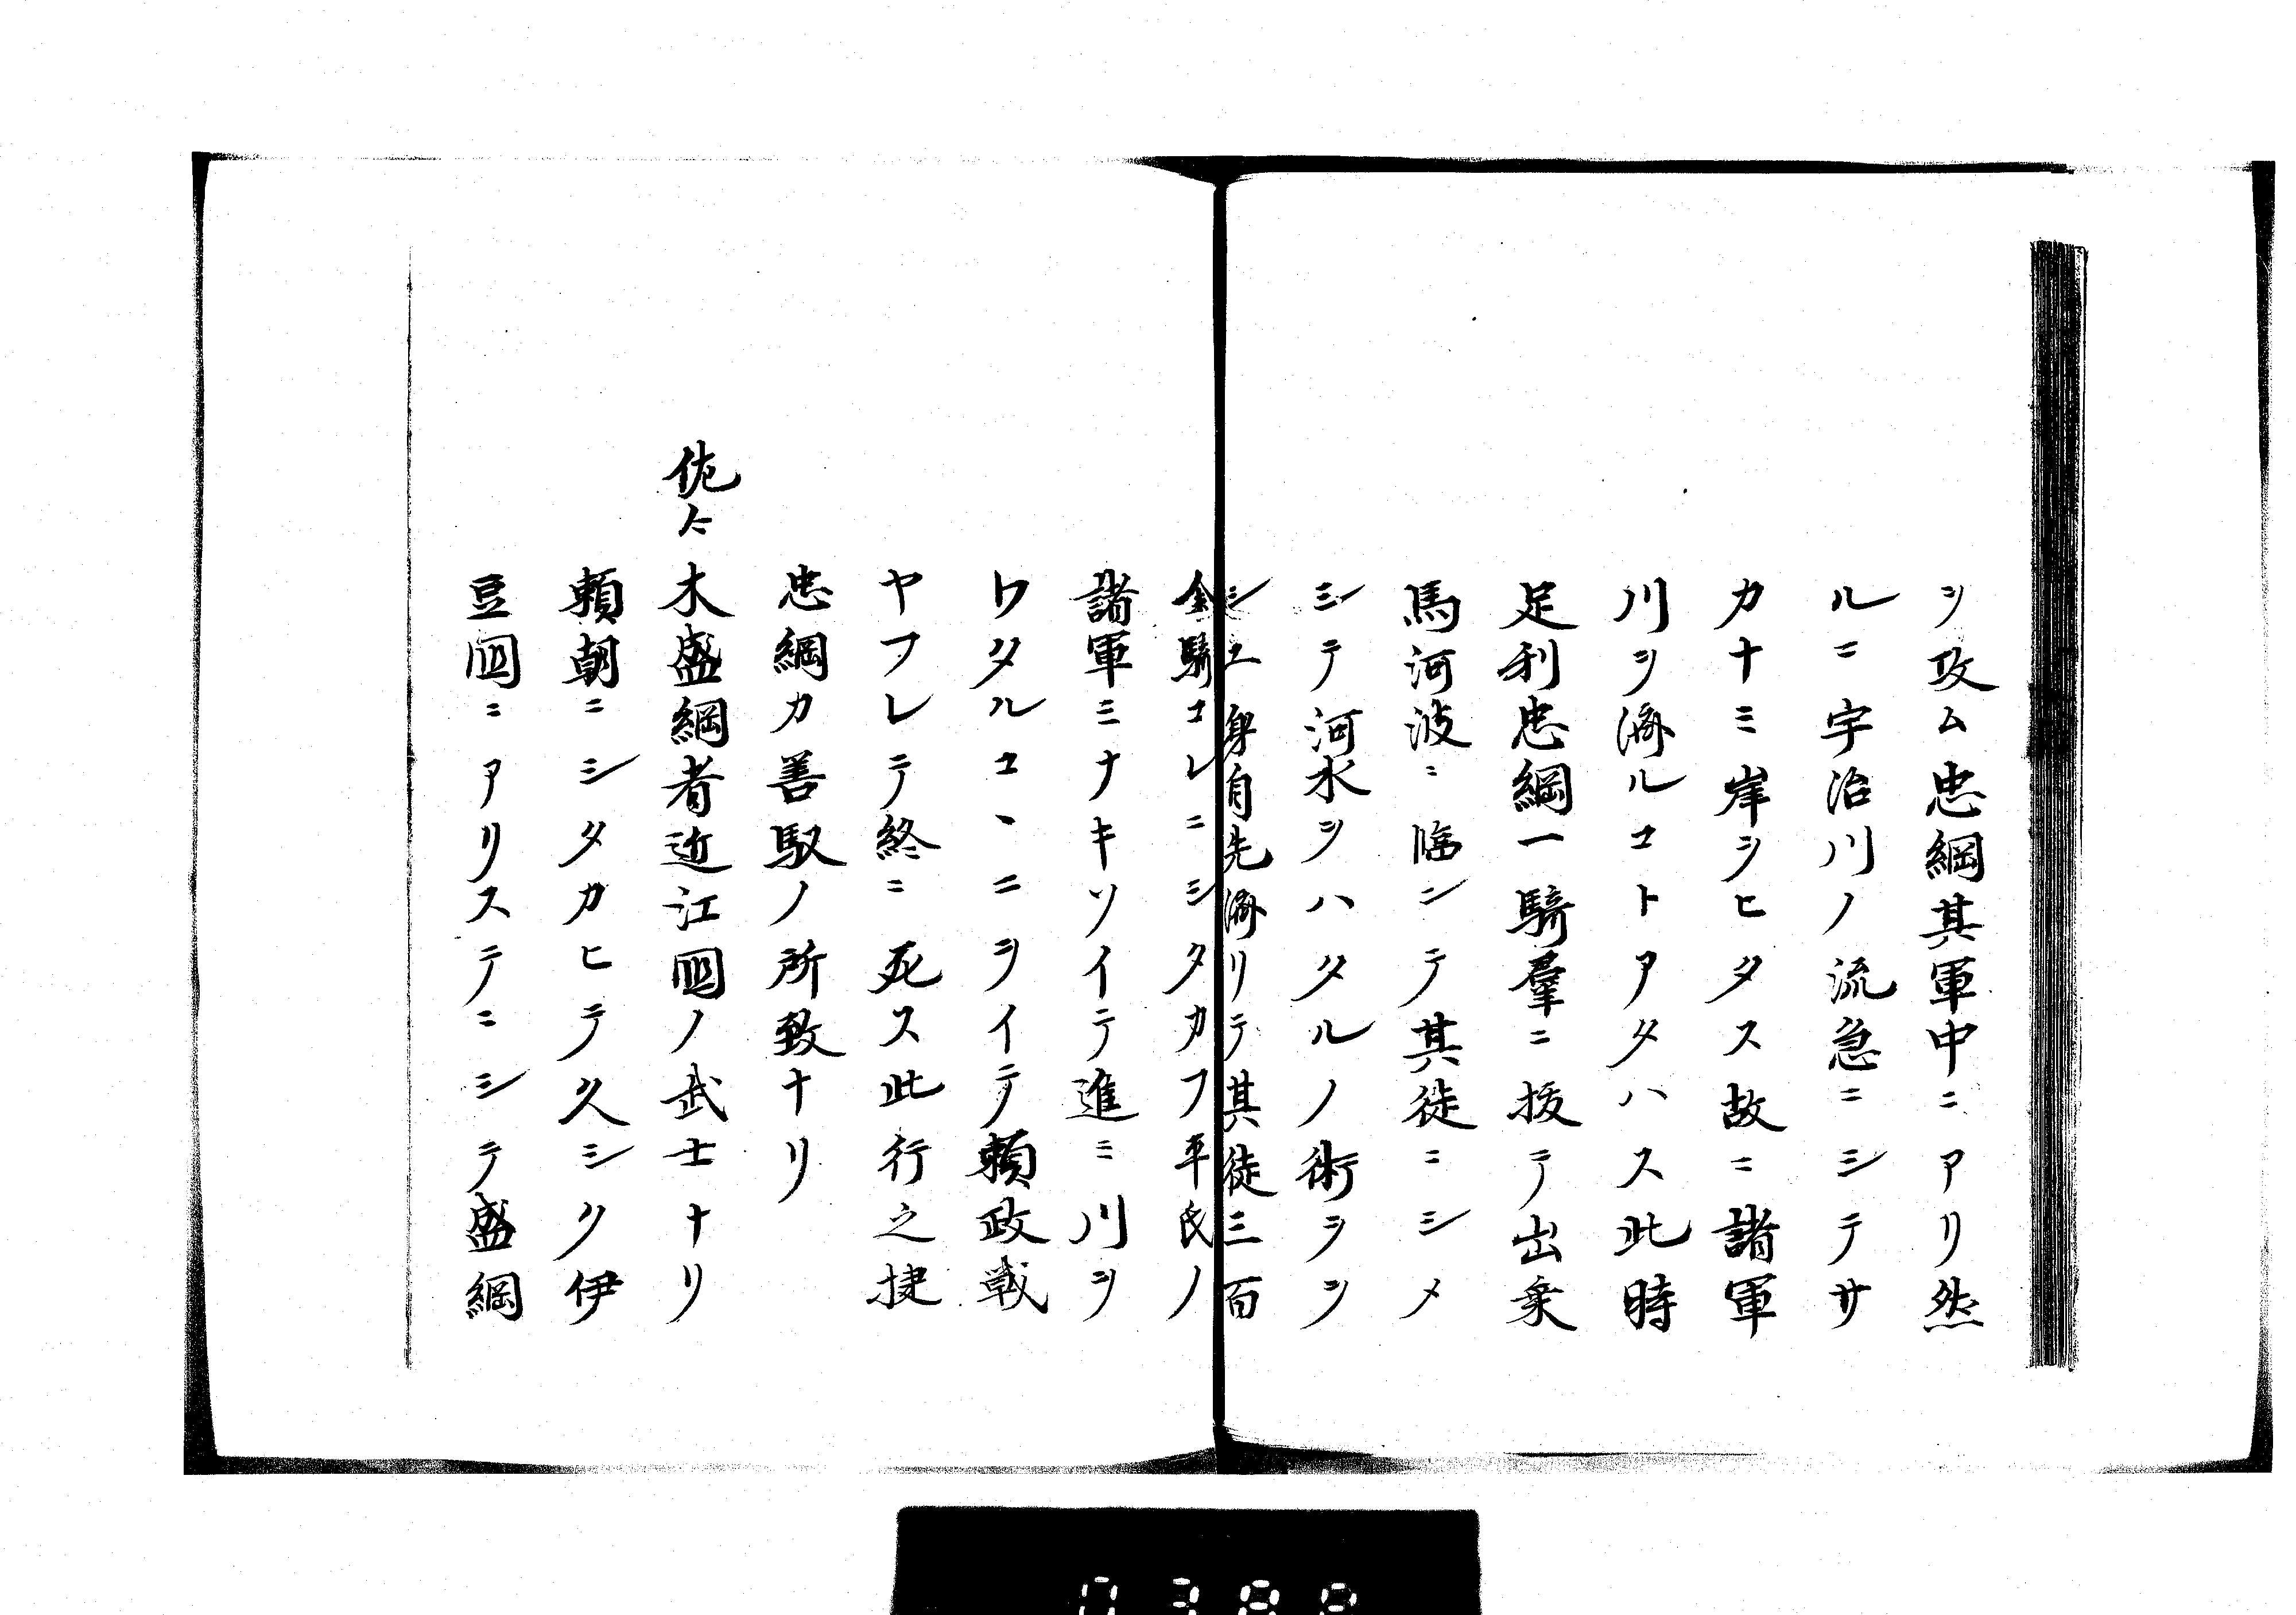 ヲ攻ム忠綱其軍中ニアリ然
ルニ宇治川ノ流急ニシテサ
カナミ岸ヲヒタス故ニ諸軍
川ヲ濟ルコトアタハス此時
足利忠綱一騎羣ニ抜テ出乗
馬河波ニ臨ンテ其徒ニシメ
シテ河水ヲハタルノ術ヲツ
シエ身自先濟リテ其徒三百
余騎コレニシタカフ平氏ノ
諸軍ミナキソイテ進ミ川ヲ
ワタルコヽニヲイテ頼政戦
ヤフレテ終ニ死ス此行之捷
忠綱カ善馭ノ所致ナリ
佐々木盛綱者近江國ノ武士ナリ
頼朝ニシタカヒテ久シク伊
豆國ニアリステニシテ盛綱